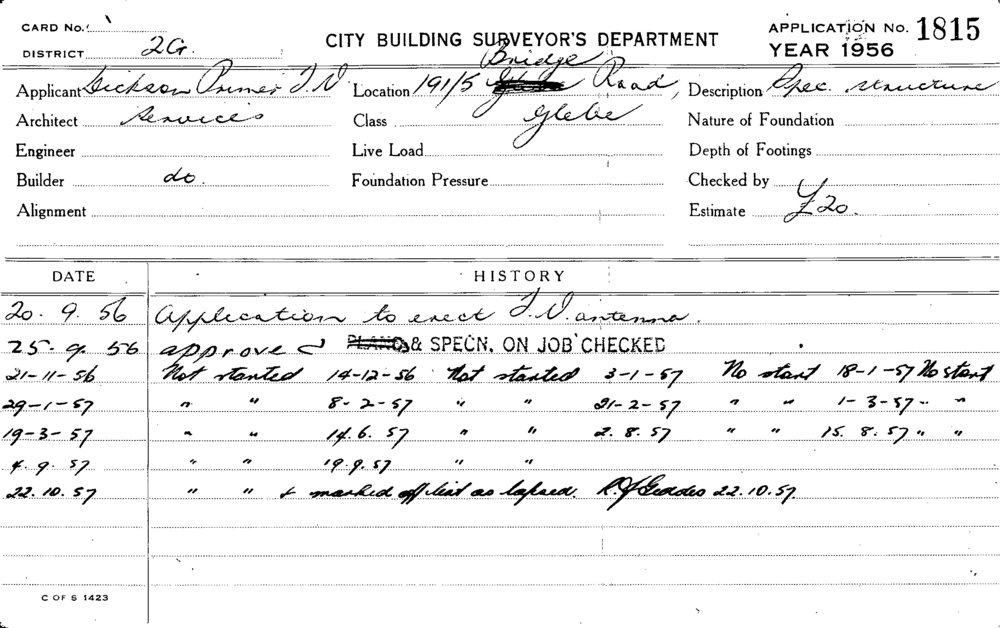 CARD No. APPLICATION No. 1815
DISTRICT 2G. CITY BUILDING SURVEYOR'S DEPARTMENT YEAR 1956
Applicant Dickson Primer T.V Location 191/5 Bridge Road, Description Spec. structure
Architect Services Class Glebe Nature of Foundation
Engineer Live Load Depth of Footings
Builder do. Foundation Pressure Checked by
Alignment Estimate £20.
DATE HISTORY
20. 9. 56 Application to erect T.V. antenna.
25. 9. 56 approved PLANS & SPECN. ON JOB CHECKED
21-11-56 Not started 14-12-56 Not started 3-1-57 No start 18-1-57 No start
29-1-57 " " 8-2-57 " " 21-2-57 " " 1-3-57 " "
19-3-57 " " 14.6.57 " " 2.8.57 " " 15.8.57 " "
4.9.57 " " 19.9.57 " "
22.10.57 " " & marked off list as lapsed. R.J. Geddes 22.10.57.
C OF S 1423